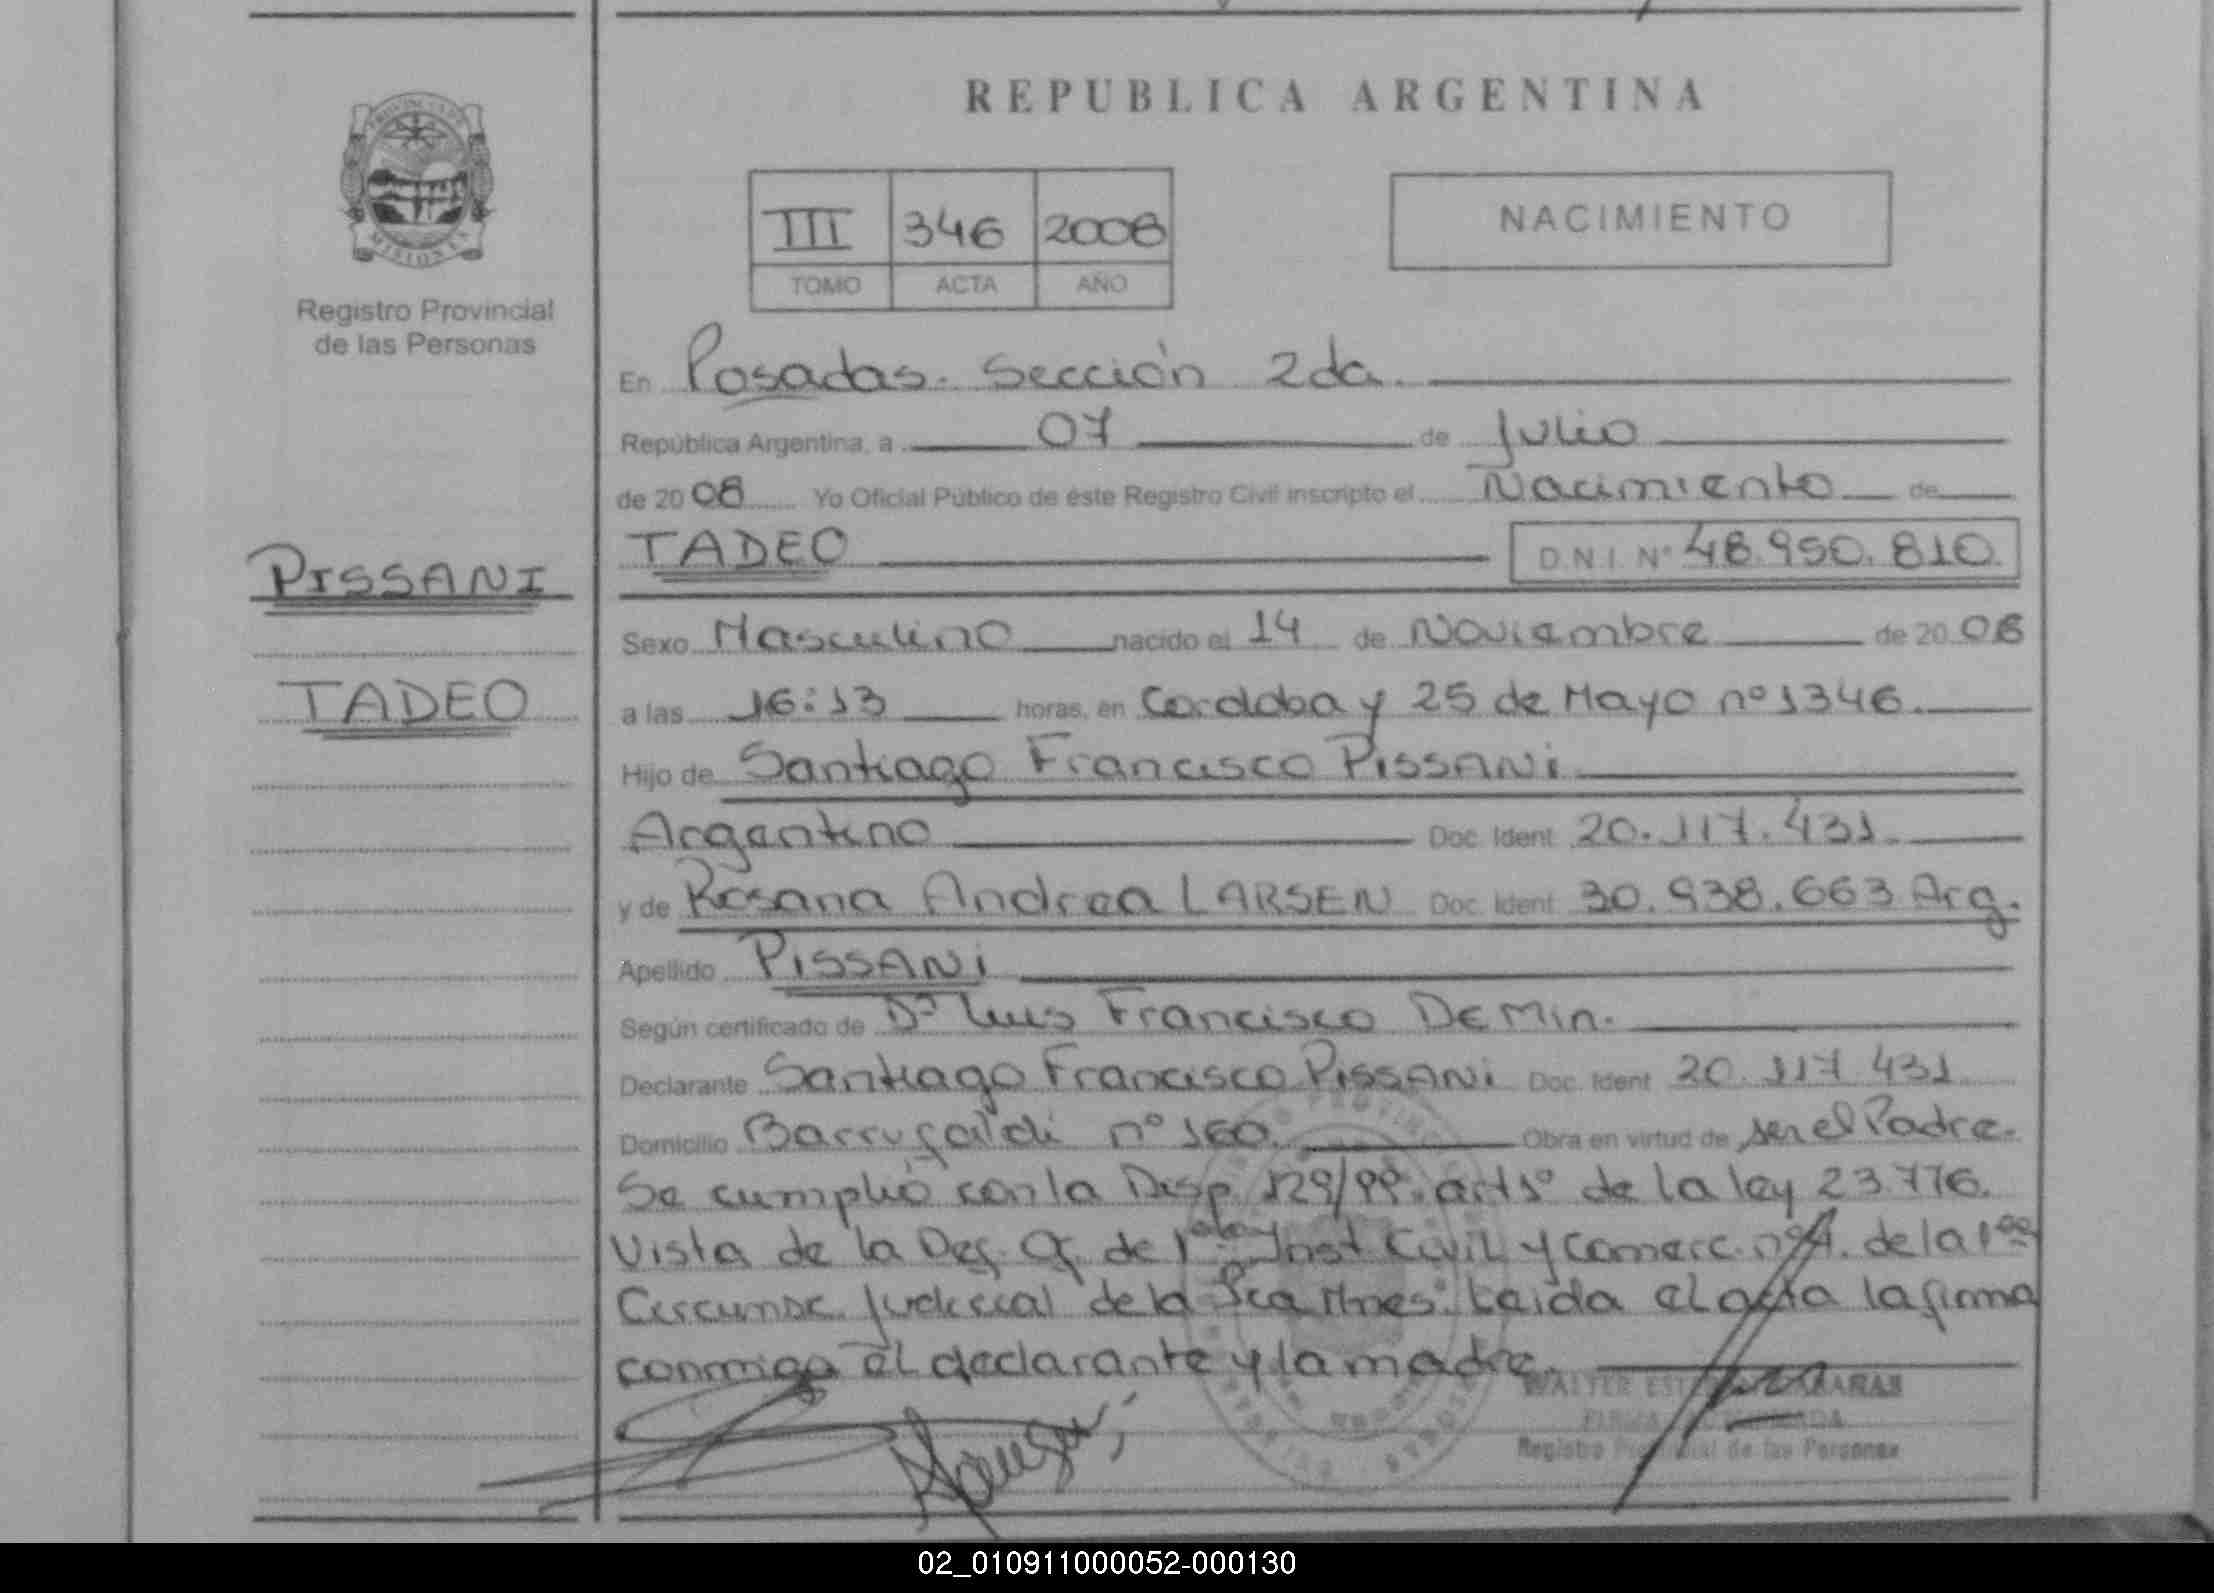 REPUBLICA ARGENTINA
PROVINCIA DE
MISIONES
Registro Provincial
de las Personas
III 346 2008
TOMO ACTA AÑO
NACIMIENTO
En Posadas. Sección 2da.
República Argentina, a 07 de Julio
de 2008 Yo Oficial Público de éste Registro Civil inscripto el Nacimiento de
TADEO D.N.I. Nº 48.950.810.
PISSANI
TADEO
Sexo Masculino nacido el 14 de Noviembre de 2006
a las 16:13 horas, en Cordoba y 25 de Mayo nº 1346.
Hijo de Santiago Francisco PISSANi
Argentino Doc. Ident. 20.117.431.
y de Rosana Andrea LARSEN Doc. Ident. 30.938.663 Arg.
Apellido PISSANi
Según certificado de Dr Luis Francisco DEMin.
Declarante Santiago Francisco PISSANi Doc. Ident. 20.117 431
Domicilio nº 160. Obra en virtud de ser el Padre.
Se cumplió con la Disp. 129/99. art 1º de la ley 23.776.
Vista de la Def. Of. de Inst Civil y Comerc. de la 1ra
Circunsc. Judicial de la Pcia Mnes. Leida el acta la firma
conmigo el declarante y la madre.
WALTER
Registro Provincial de las Personas
02_010911000052-000130